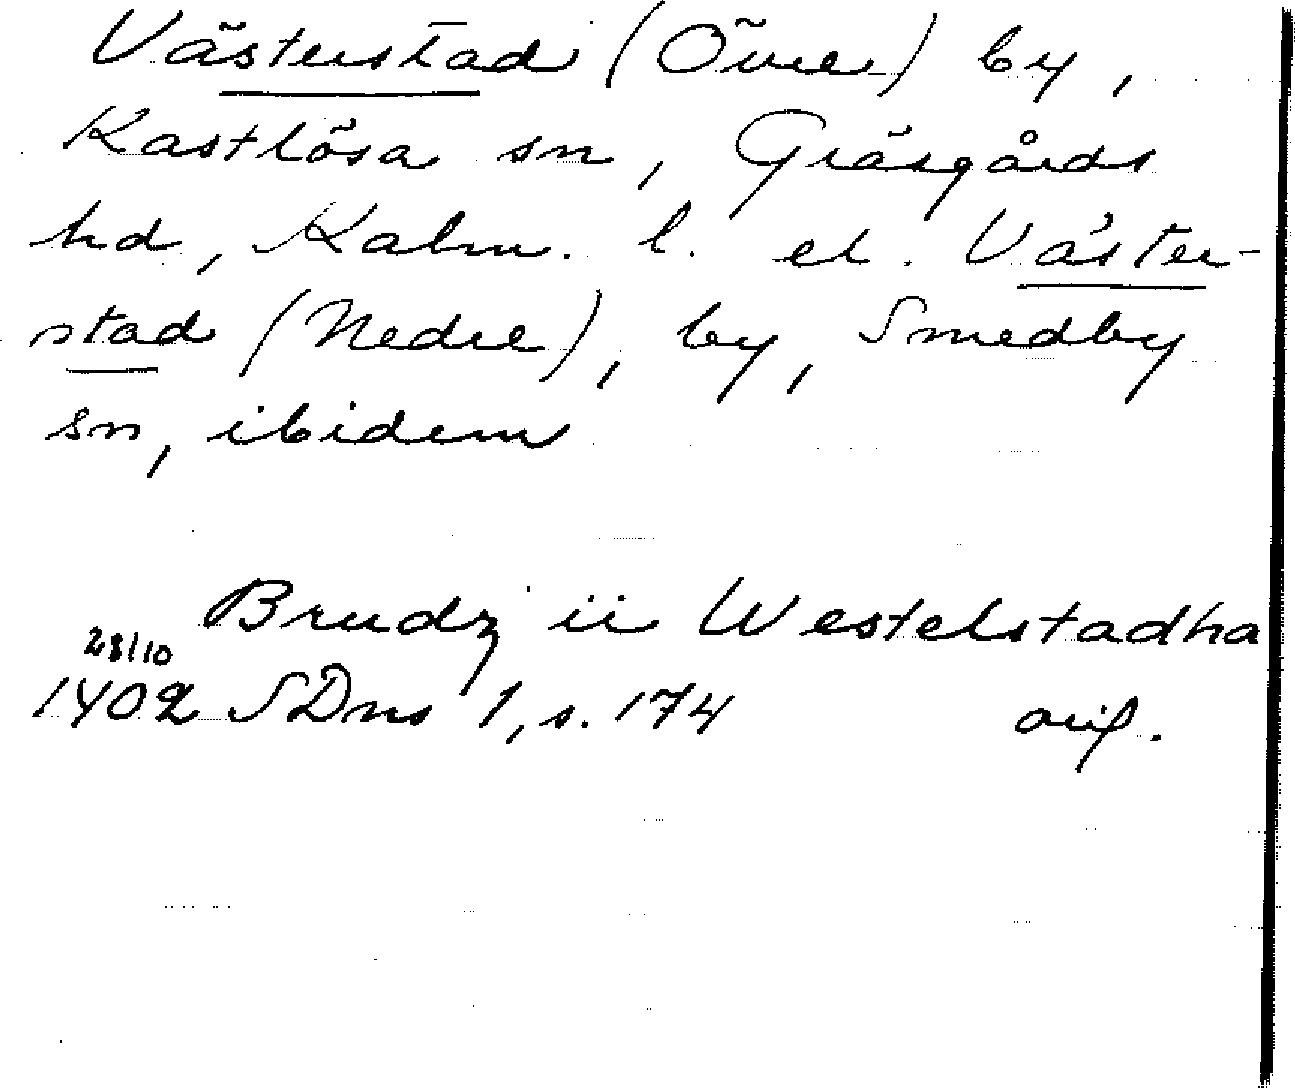 Västerstad (Övre) by,
Kastlösa sn, Gräsgårds
hd, Kalm. l. el. Väster-
stad (Nedre), by, Smedby
sn, ibidem
Brudz ii Westelstadha
28/10
1402 SDns 1, s. 174 orig.